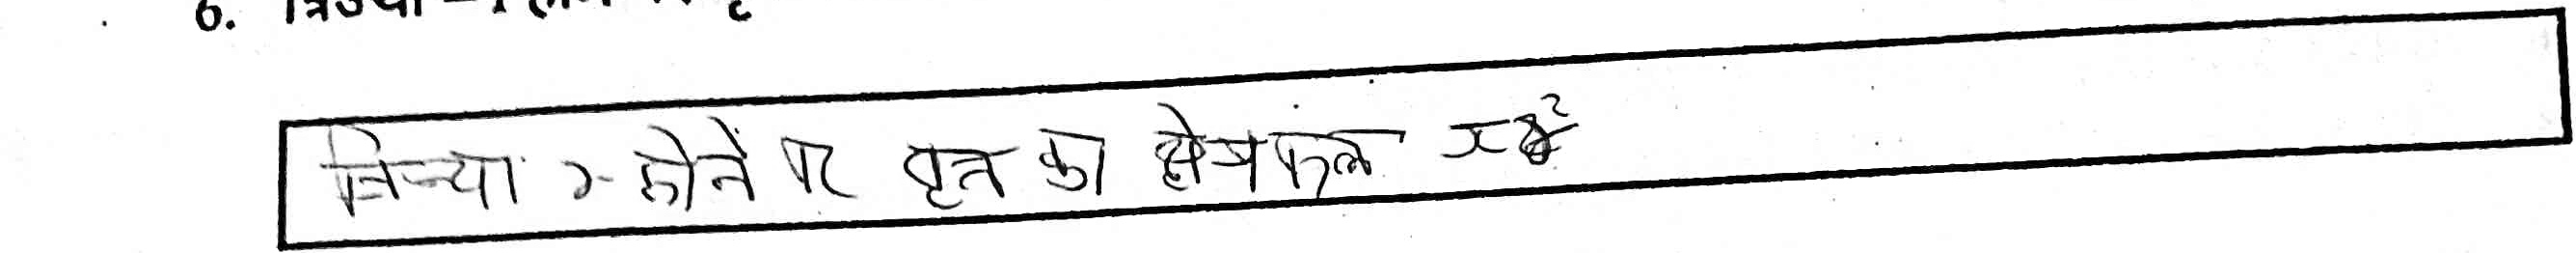 6. त्रिज्या
त्रिज्या r होने पर वृत्त का क्षेत्रफल πr²